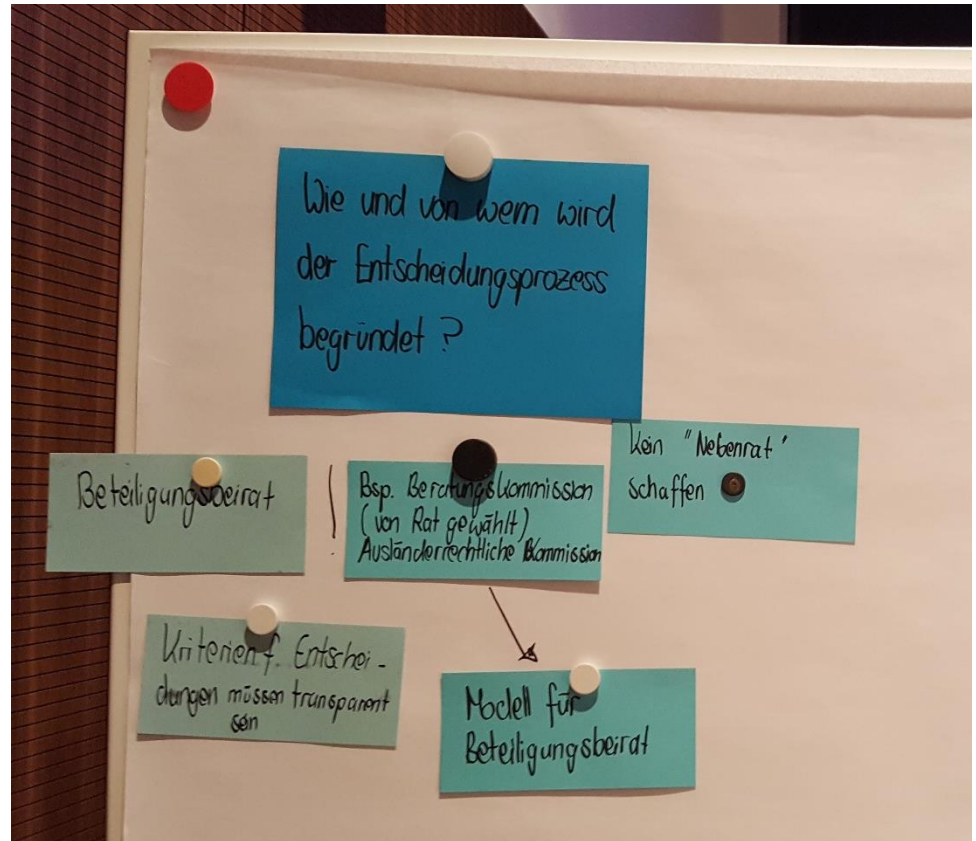 Wie und von wem wird
der Entscheidungsprozess
begründet ?
Beteiligungsbeirat
!
Bsp. Beratungskommission
(von Rat gewählt)
Ausländerrechtliche Kommission
Kein "Nebenrat"
schaffen
Kriterien f. Entschei-
dungen müssen transparent
sein
Modell für
Beteiligungsbeirat